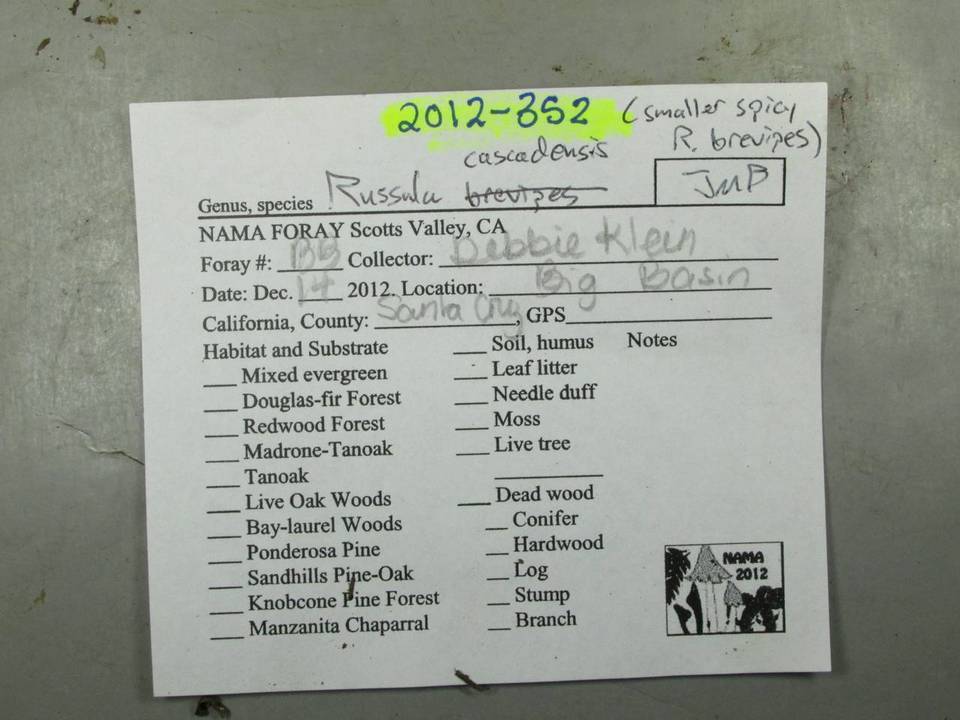 2012-352 (smaller spicy
R. brevipes)
cascadensis
Genus, species Russula brevipes JMP
NAMA FORAY Scotts Valley, CA
Foray #: BB Collector: Debbie Klein
Date: Dec. 14 2012, Location: Big Basin
California, County: Santa Cruz, GPS
Habitat and Substrate ___ Soil, humus Notes
___ Mixed evergreen ___ Leaf litter
___ Douglas-fir Forest ___ Needle duff
___ Redwood Forest ___ Moss
___ Madrone-Tanoak ___ Live tree
___ Tanoak
___ Live Oak Woods ___ Dead wood
___ Bay-laurel Woods __ Conifer
___ Ponderosa Pine __ Hardwood
___ Sandhills Pine-Oak __ Log
___ Knobcone Pine Forest __ Stump
___ Manzanita Chaparral __ Branch
NAMA
2012